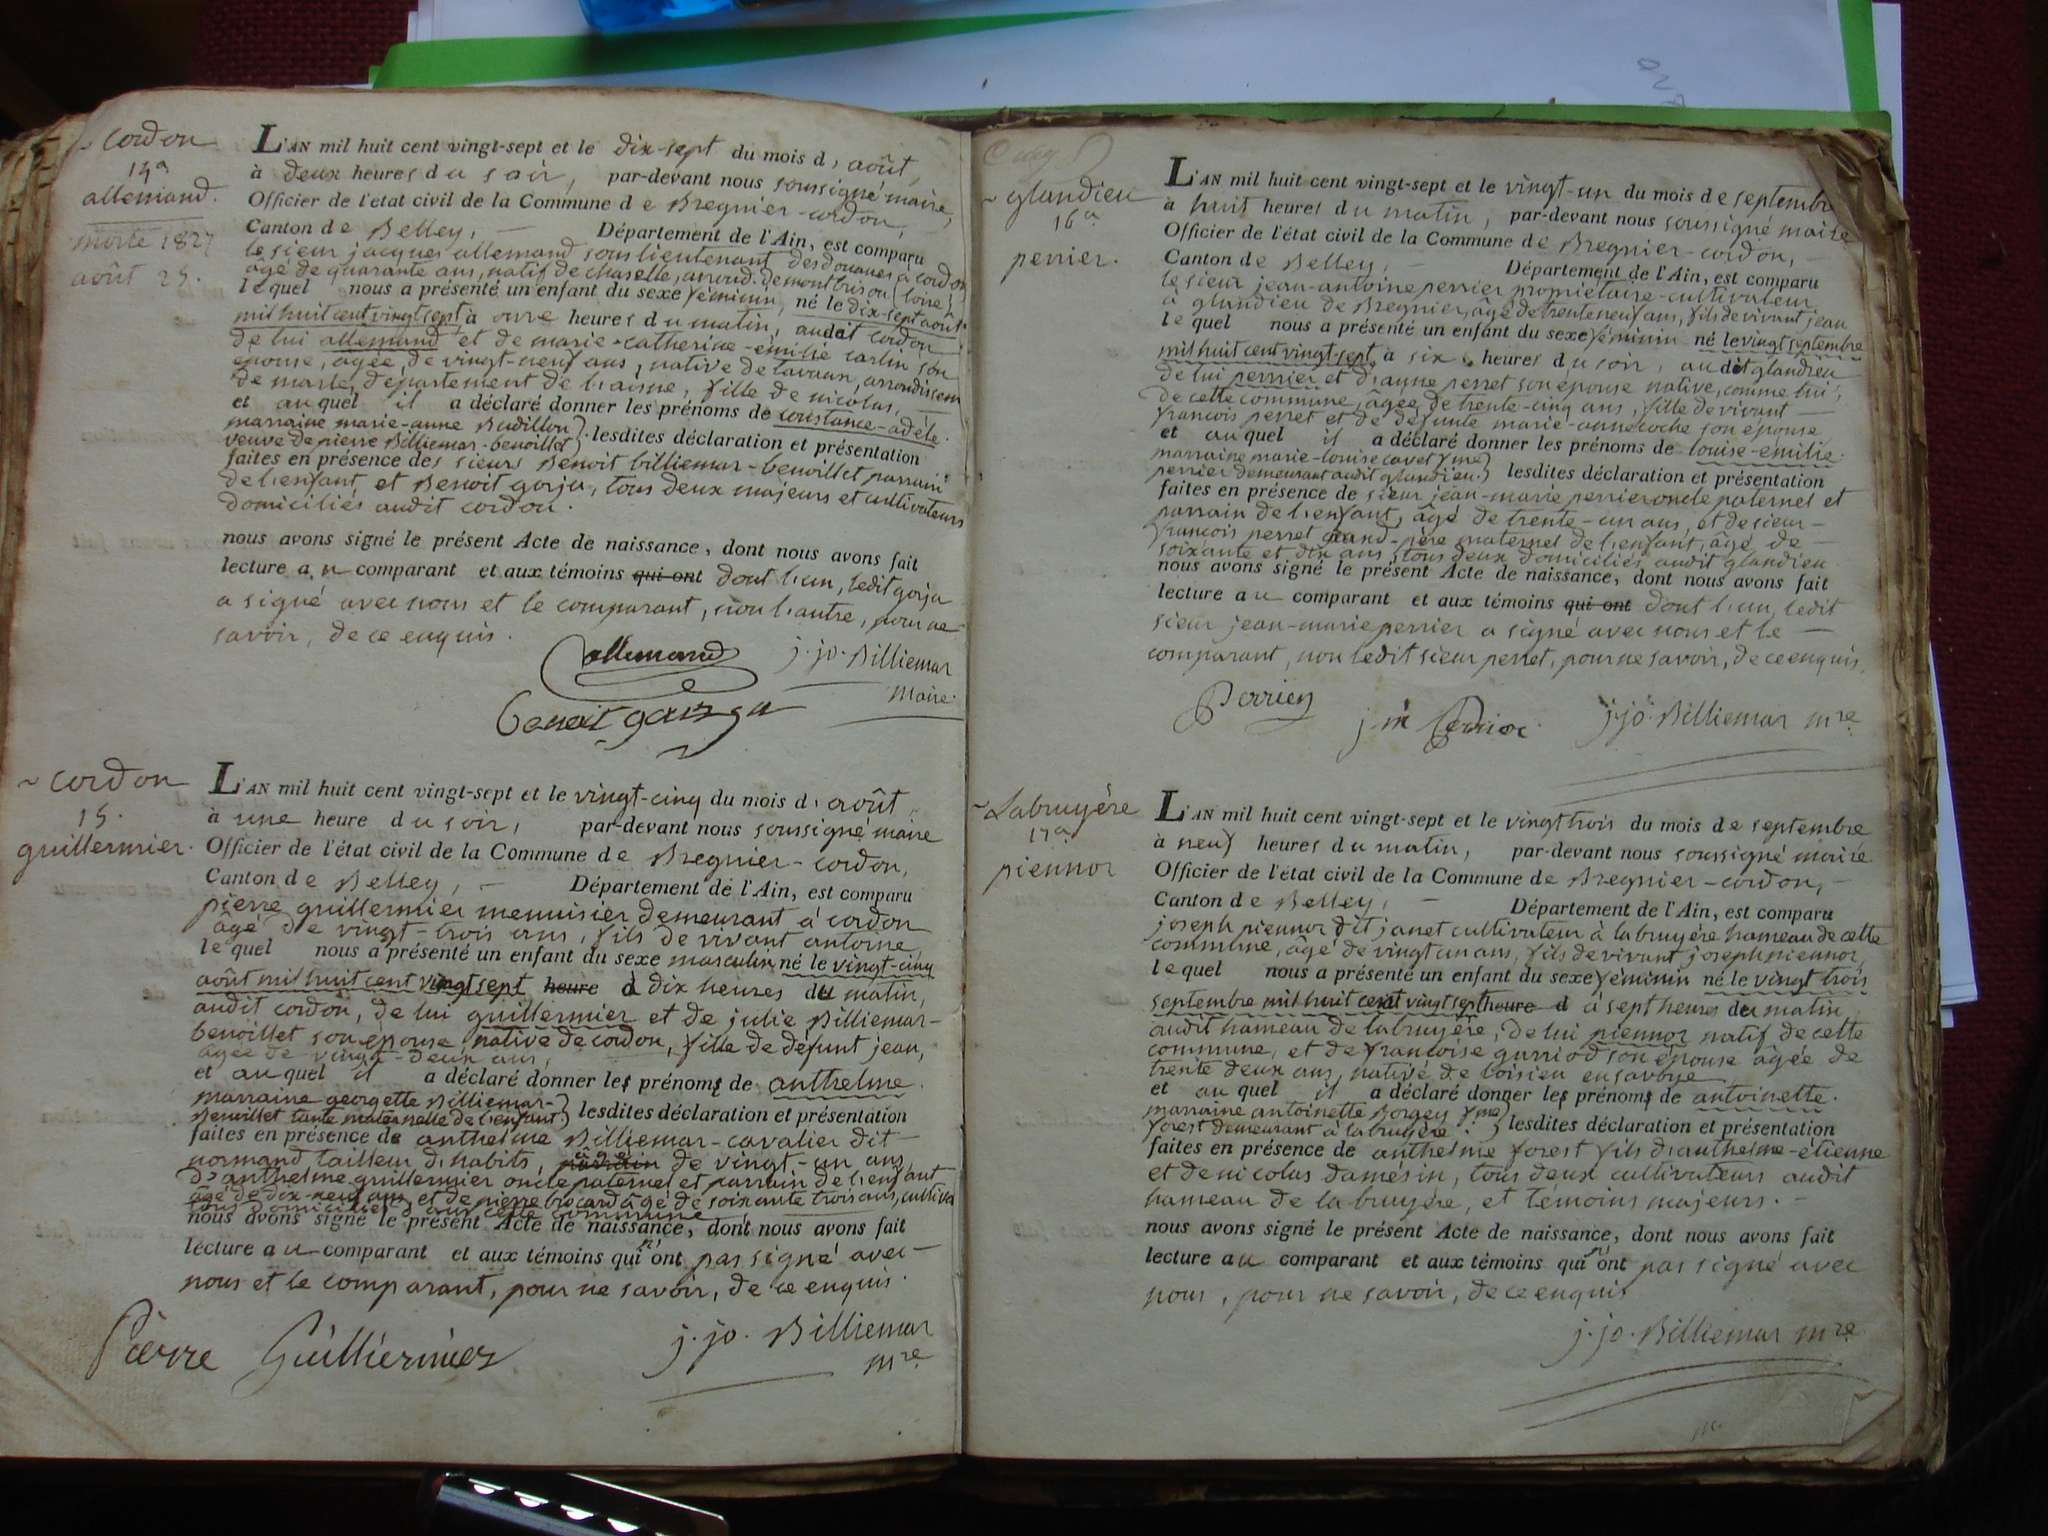 ~ cordon
14ª
allemand.
morte 1827
août 25.
L'AN mil huit cent vingt-sept et le dix-sept du mois d, août,
à deux heures du soir, par-devant nous soussigné maire,
Officier de l'état civil de la Commune de Bregnier-cordon,
Canton de Belley, — Département de l'Ain, est comparu
le sieur jacques allemand sous lieutenant des douanes à cordon
âgé de quarante ans, natif de chaselle, arrond. de montbrison (loire)
lequel nous a présenté un enfant du sexe féminin, né le dix-sept août
mil huit cent vingt sept à onze heures du matin, audit cordon
de lui allemand et de marie-catherine-émilie carlin son
épouse, âgée, de vingt-neuf ans, native de arrondissem
de marle, département de l'aisne, fille de nicolas, —
et auquel il a déclaré donner les prénoms de constance-adèle.
marraine marie-anne Budillon
veuve de pierre Billiemar-benoillet } lesdites déclaration et présentation
faites en présence des sieurs Benoit billiemar-benoillet parrain
de l'enfant et Benoit gorju, tous deux majeurs et cultivateurs
domiciliés audit cordon.
nous avons signé le présent Acte de naissance, dont nous avons fait
lecture au comparant et aux témoins qui ont dont l'un, ledit gorju
a signé avec nous et le comparant, non l'autre, pour ne
savoir, de ce enquis.
allemand j. jo. Billiemar
maire.
Benoit
~ cordon
15.
guillermier.
L'AN mil huit cent vingt-sept et le vingt-cinq du mois d, août
à une heure du soir, par-devant nous soussigné maire
Officier de l'état civil de la Commune de Bregnier-cordon,
Canton de Belley, — Département de l'Ain, est comparu
pierre guillermier menuisier demeurant à cordon
âgé de vingt-trois ans, fils de vivant antoine,
lequel nous a présenté un enfant du sexe masculin né le vingt-cinq
août mil huit cent vingt sept heure à dix heures du matin,
audit cordon, de lui guillermier et de julie Billiemar-
benoillet son épouse, native de cordon, fille de défunt jean,
âgée de vingt-deux ans,
et auquel il a déclaré donner les prénoms de anthelme.
marraine georgette Billiemar-
Benoillet tante maternelle de l'enfant } lesdites déclaration et présentation
faites en présence de anthelme Billiemar-cavalier dit
normand tailleur d'habits, âgé de vingt-un ans,
d'anthelme guillermier oncle paternel et parrain de l'enfant
âgé de dix-neuf ans et de pierre brocard âgé de soixante trois ans, cultiva
tous domiciliés dans cette commune
nous avons signé le présent Acte de naissance, dont nous avons fait
lecture au comparant et aux témoins qui n'ont pas signé avec
nous et le comparant, pour ne savoir, de ce enquis.
Pierre Guilliermier j. jo. Billiemar
mre
~ glandieu
16ª
perrier.
L'AN mil huit cent vingt-sept et le vingt-un du mois de septembre
à huit heures du matin, par-devant nous soussigné maire
Officier de l'état civil de la Commune de Bregnier-cordon, —
Canton de Belley, — Département de l'Ain, est comparu
le sieur jean-antoine perrier propriétaire-cultivateur
à glandieu de Bregnier, âgé de trente neuf ans, fils de vivant jean
lequel nous a présenté un enfant du sexe féminin né le vingt septembre
mil huit cent vingt-sept, à six heures du soir, audit glandieu
de lui perrier et d'anne perret son épouse native, comme lui,
de cette commune, âgée de trente-cinq ans, fille de vivant —
françois perret et de défunte marie-anne coche son épouse
et auquel il a déclaré donner les prénoms de louise-émilie.
marraine marie-louise cavet fme
perrier demeurant audit glandieu. } lesdites déclaration et présentation
faites en présence de sieur jean-marie perrier oncle paternel et
parrain de l'enfant, âgé de trente-un ans, et de sieur —
françois perret grand-père maternel de l'enfant, âgé de —
soixante et dix ans, tous deux domiciliés audit glandieu
nous avons signé le présent Acte de naissance, dont nous avons fait
lecture au comparant et aux témoins qui ont dont l'un, ledit
sieur jean-marie perrier a signé avec nous et le —
comparant, non ledit sieur perret, pour ne savoir, de ce enquis.
Perrier j. m Perrier j. jo. Billiemar mre
~ Labruyère
17ª
piennor
L'AN mil huit cent vingt-sept et le vingt trois du mois de septembre
à neuf heures du matin, par-devant nous soussigné maire
Officier de l'état civil de la Commune de Bregnier-cordon, —
Canton de Belley, — Département de l'Ain, est comparu
joseph piennor dit janet cultivateur à la bruyère hameau de cette
commune, âgé de vingt un ans, fils de vivant joseph piennor,
lequel nous a présenté un enfant du sexe féminin né le vingt trois
septembre mil huit cent vingt sept heure d à sept heures du matin
audit hameau de labruyère, de lui piennor natif de cette
commune, et de françoise gurriod son épouse âgée de
trente deux ans, native de loisieu en savoye
et auquel il a déclaré donner les prénoms de antoinette.
marraine antoinette Borgey fme
forest demeurant à labruyère. } lesdites déclaration et présentation
faites en présence de anthelme forest fils d'anthelme-étienne
et de nicolas damésin, tous deux cultivateurs audit
hameau de la bruyère, et témoins majeurs. —
nous avons signé le présent Acte de naissance, dont nous avons fait
lecture au comparant et aux témoins qui n'ont pas signé avec
nous, pour ne savoir, de ce enquis
j. jo. Billiemar mre